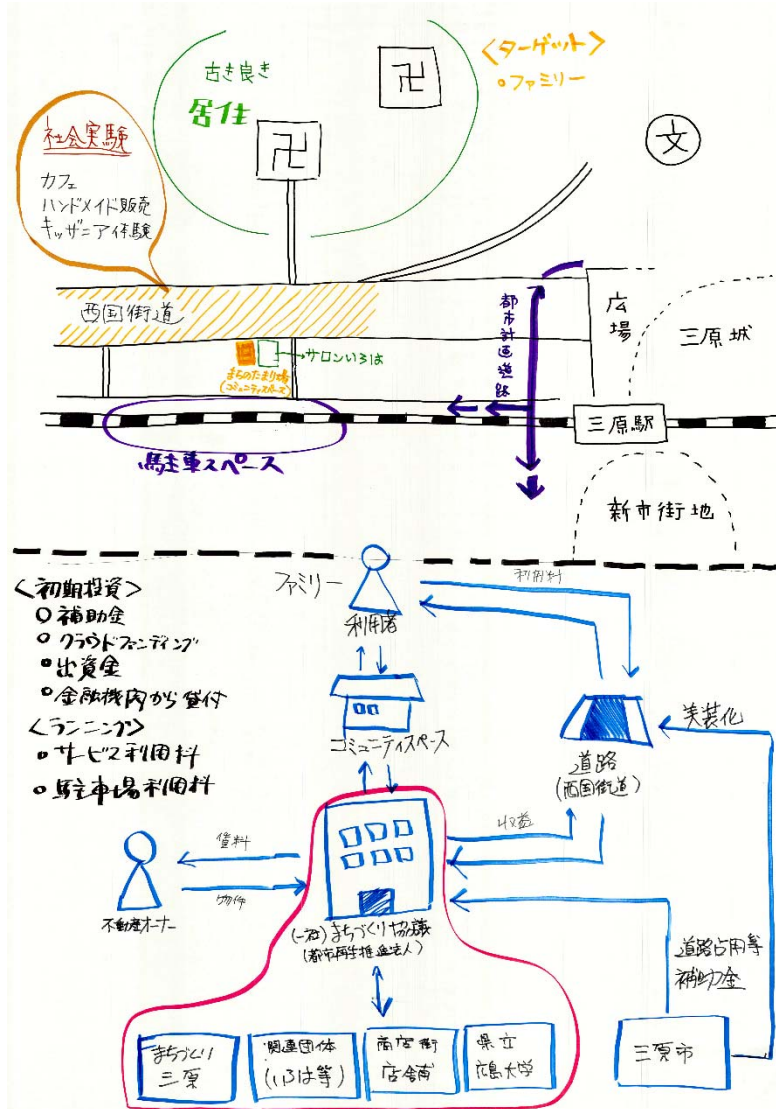 古き良き
居住
卍
卍
<ターゲット>
・ファミリー
文
社会実験
カフェ
ハンドメイド販売
キッザニア体験
西国街道
サロンいろは
まちのたまり場
(コミュニティスペース)
都市計画道路
広場
三原城
三原駅
駐車スペース
新市街地
<初期投資>
○補助金
○クラウドファンディング
・出資金
・金融機内から貸付
<ランニング>
・サービス利用料
・駐車場利用料
ファミリー
利用者
利用料
コミュニティスペース
美装化
道路
(西国街道)
収益
賃料
物件
不動産オーナー
(一社)まちづくり協議
(都市再生推進法人)
道路占用等
補助金
まちづくり
三原
関連団体
(いろは等)
商店街
店舗
県立
広島大学
三原市